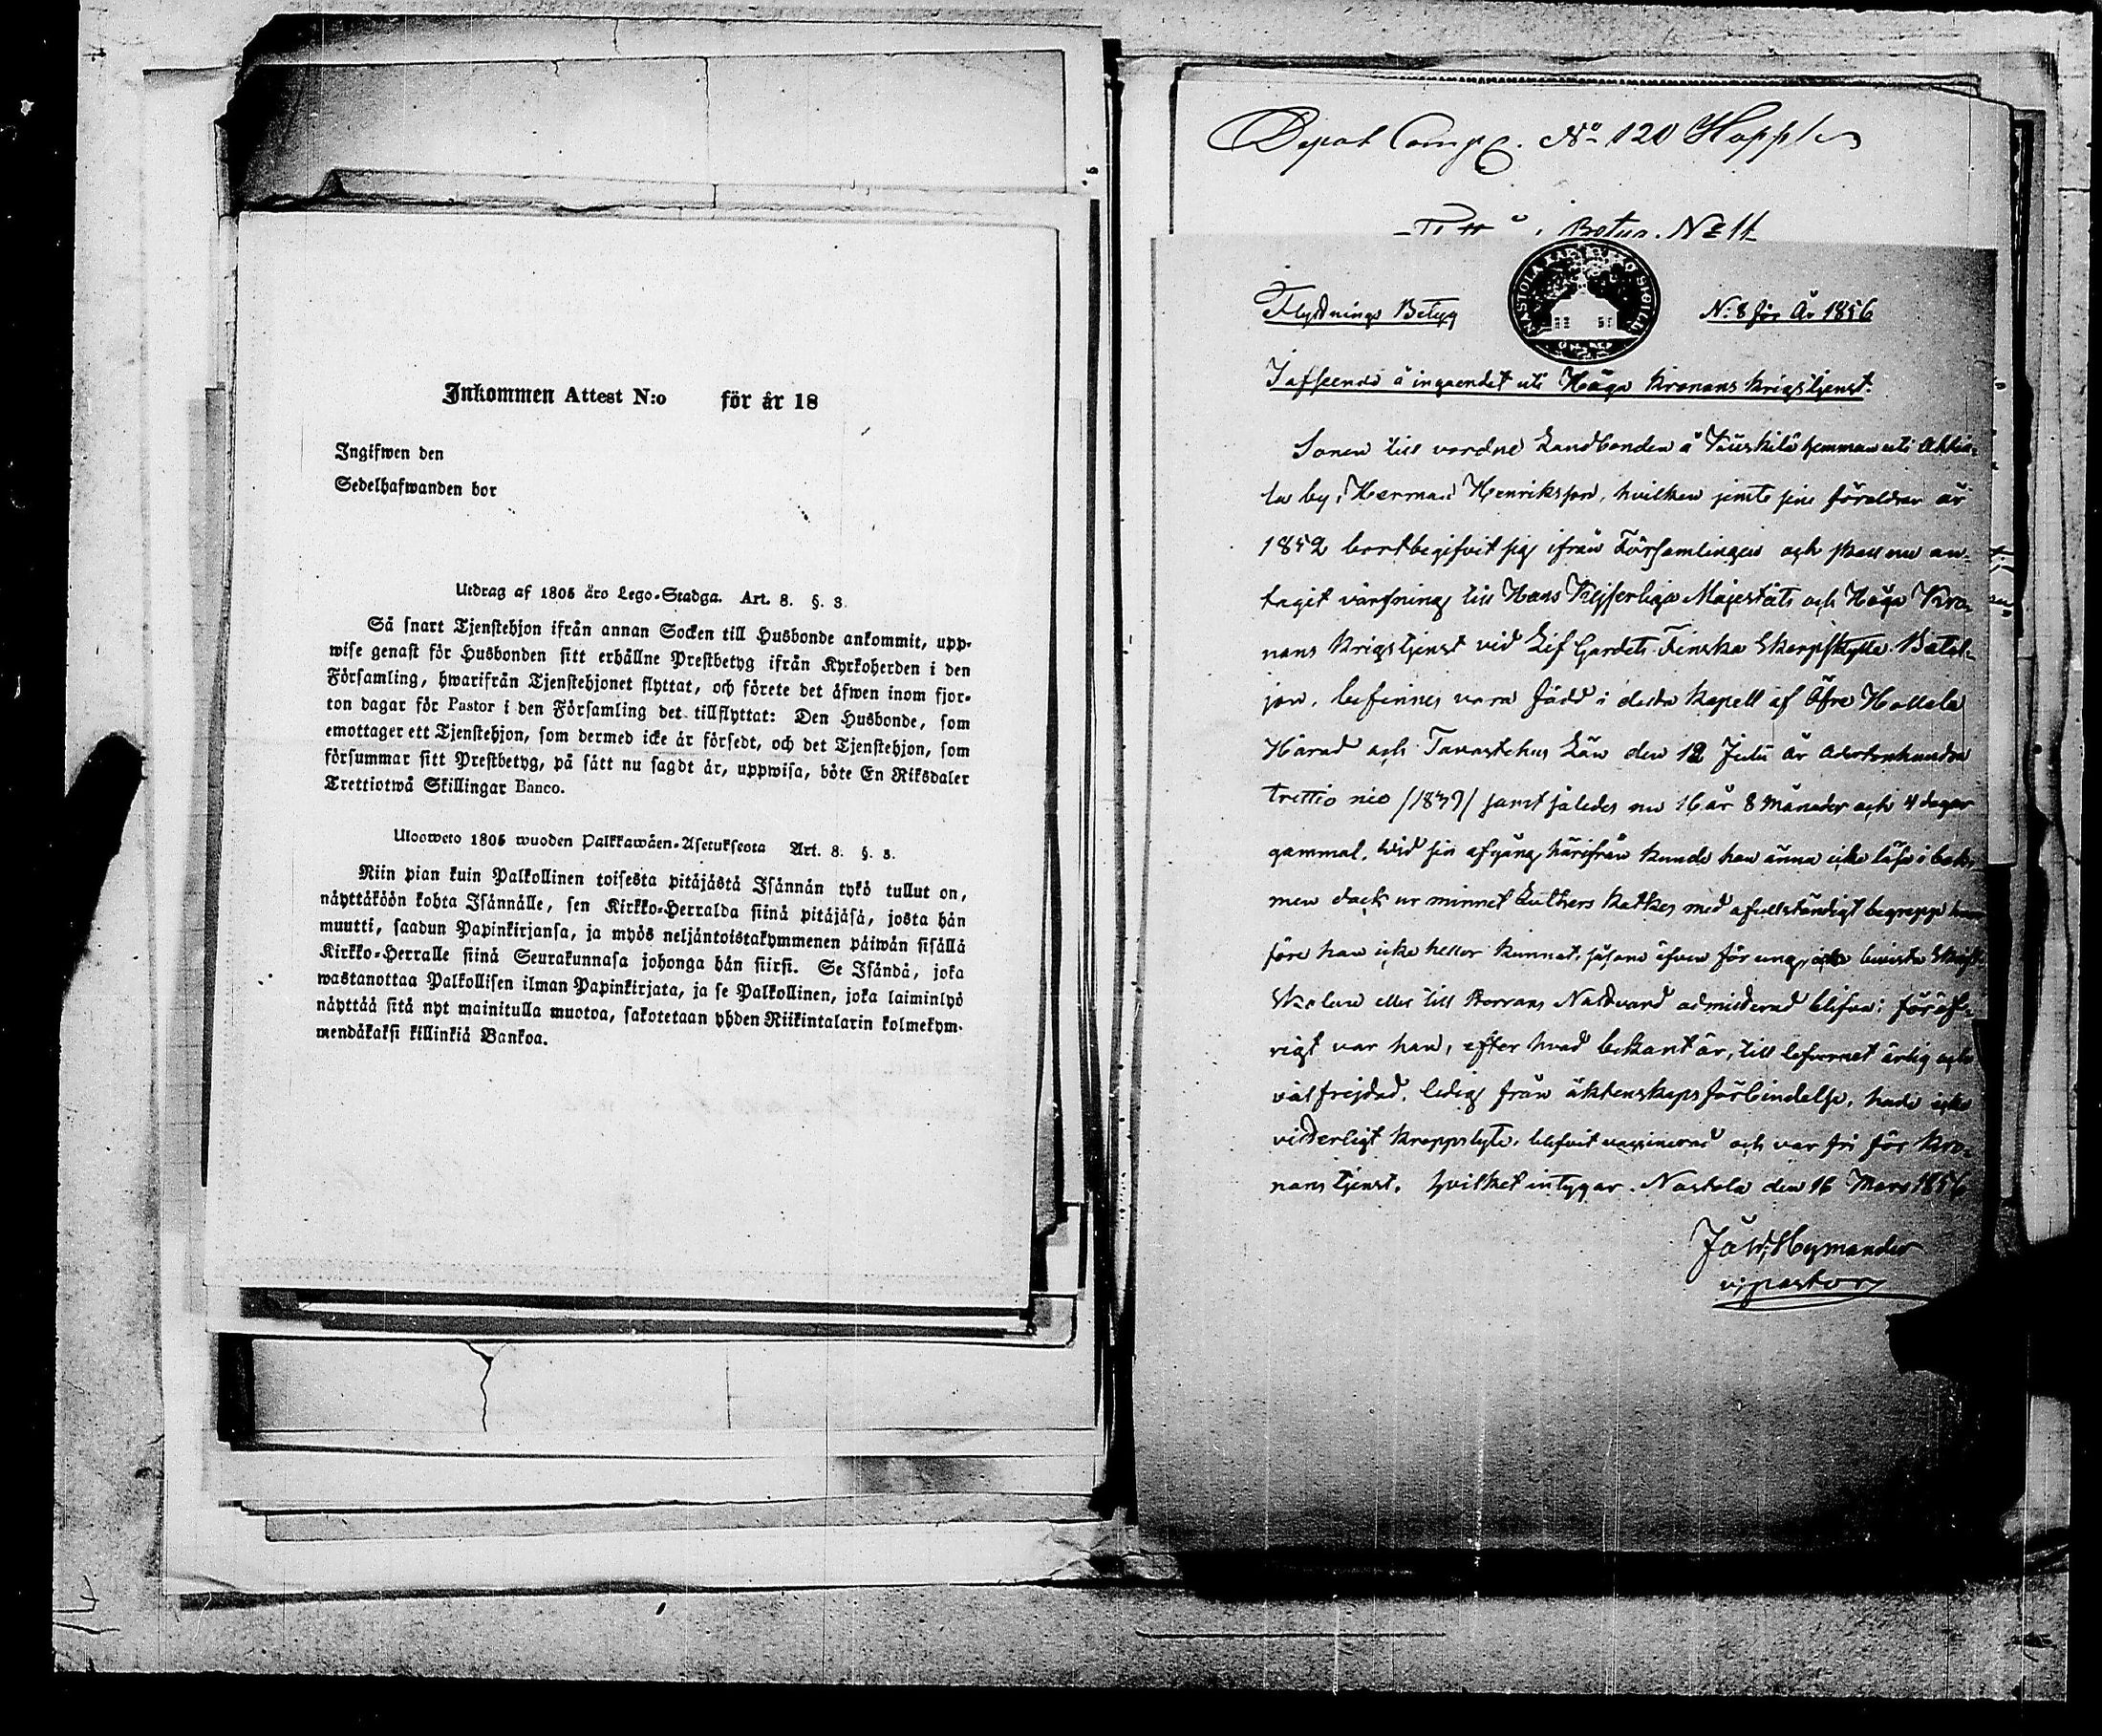 Inkommen Attest N:o för år 18
Ingifwen den
Sedelhafwanden bor
Utdrag af 1805 års Lego-Stadga. Art. 8. §. 3.
Så snart Tjenstehjon ifrån annan Socken till Husbonde ankommit, upp-
wise genast för Husbonden sitt erhållne Prestbetyg ifrån Kyrkoherden i den
Församling, hwarifrån Tjenstehjonet flyttat, och förete det äfwen inom fjor-
ton dagar för Pastor i den Församling det tillflyttat: Den Husbonde, som
emottager ett Tjenstehjon, som dermed icke är försedt, och det Tjenstehjon, som
försummar sitt Prestbetyg, på sätt nu sagdt är, uppwisa, böte En Riksdaler
Trettiotwå Skillingar Banco.
Ulosweto 1805 wuoden Palkkawäen-Asetuksesta Art. 8. §. 3.
Niin pian kuin Palkollinen toisesta pitäjästä Isännän tykö tullut on,
näyttäköön kohta Isännälle, sen Kirkko-Herralda siinä pitäjäsä, josta hän
muutti, saadun Papinkirjansa, ja myös neljäntoistakymmenen päiwän sisällä
Kirkko-Herralle siinä Seurakunnasa johonga hän siirsi. Se Isändä, joka
wastanottaa Palkollisen ilman Papinkirjata, ja se Palkollinen, joka laiminlyö
näyttää sitä nyt mainitulla muotoa, sakotetaan yhden Riikintalarin kolmekym-
mendäkaksi killinkiä Bankoa.
Depot Comp. No 120 Hopp
Betyg No 11
Flyttnings Betyg
NASTOLA SIGILL
N:8 för År 1856
I afseende å ingåendet uti Höga Kronans Krigstjenst.
Sonen till vordne Landbonden å hemman uti
la by, Herman Henriksson, hvilken jemte sine föräldrar år
1852 bortbegifvit sig ifrån Församlingen och skall nu an-
tagit värfning till Hans Kejserliga Majestäts och Höga Kro-
nans Krigstjenst vid Lif Gardets Finska Skarpskytte Batal-
jon, befinnes vara född i detta Kapell af Öfre Hollola
Härad och Tavastehus Län den 12 Julii år Adertonhundra
trettio nio /1839/ samt således nu 16 år 8 månader och 4 dagar
gammal. Wid sin afgång härifrån kunde han ännu icke läsa i bok,
men dock ur minnet Luthers Katkes med ofullständigt begrepp
före han icke heller kunnat, såsom äfven för ung, bivista Skrift
Skolan eller till Herrans Nattvard admitterad blifva; för öf-
rigt var han, efter hvad bekant är, till lefvernet ärlig och
välfrejdad, ledig från äktenskaps förbindelse, hade icke
vidderligt kroppslyte, blefvit vaccinerad och var fri för Kro-
nans tjenst, hvilket intygar. Nastola den 16 Mars 1856
Hymander
v. pastor